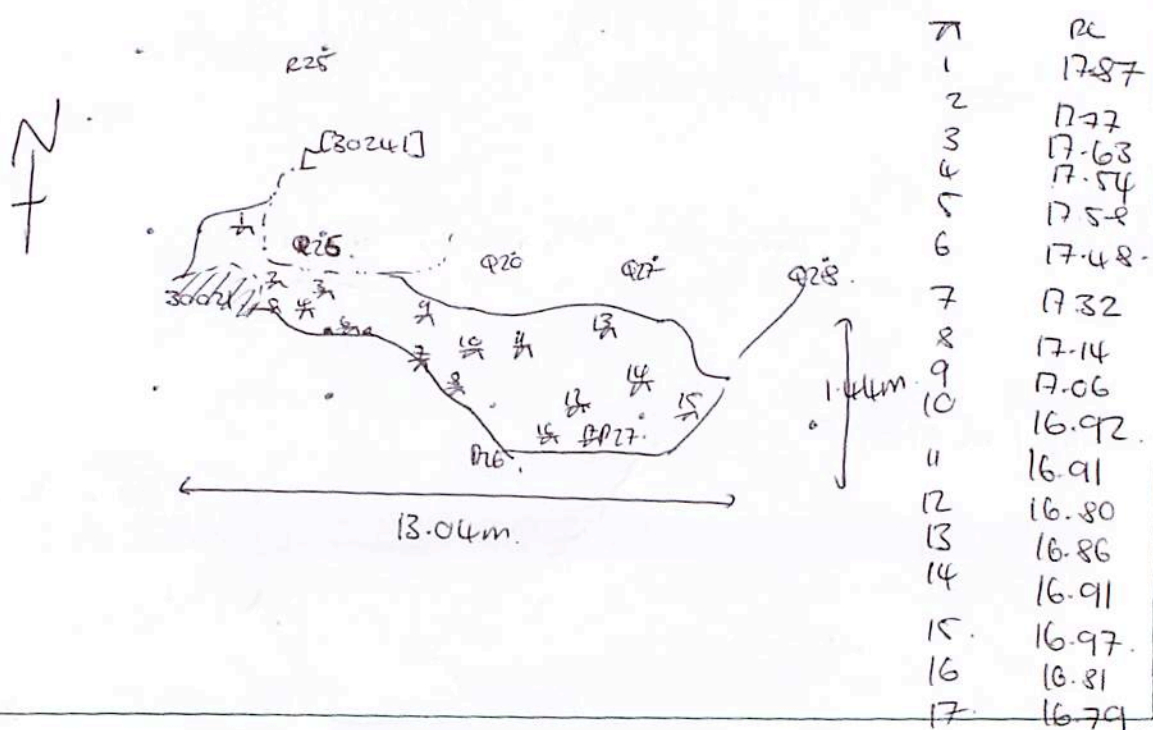 N
R25
[30241]
1
Q25
Q26
Q27
Q28
2
3
30021
4
9
13
7
10
11
8
14
12
15
16
17
P27
P26
1.44m
13.04m.
RL
1 17.87
2 17.77
3 17.63
4 17.54
5
6 17.48
7 17.32
8 17.14
9 17.06
10 16.92
11 16.91
12 16.80
13 16.86
14 16.91
15 16.97
16 16.81
17 16.79